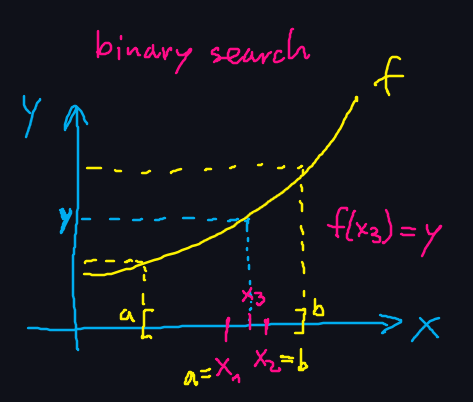 binary search
f
Y
y
f(x₃) = y
x₃
a [ ] b
X
a = x₁ x₂ = b